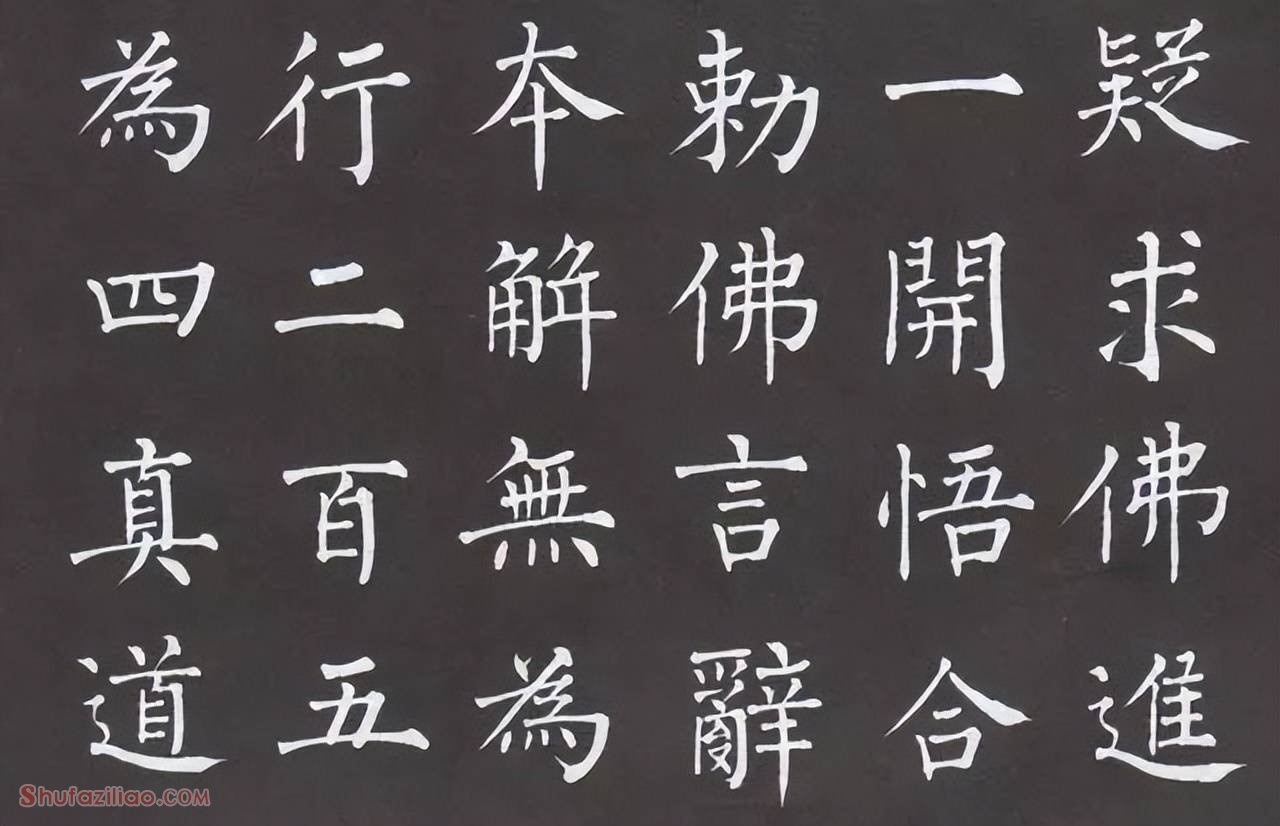 疑求佛進
一開悟合
勅佛言辭
本解無為
行二百五
為四真道
Shufaziliao.com